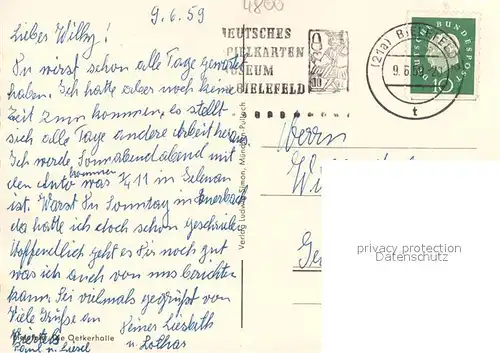 9.6.59
4800
Liebes Willy!
Du wirst schon alle Tage gewartet
haben. Ich hatte aber noch keine
Zeit zum kommen, es stellt
sich alle Tage andere Arbeit heraus
Ich werde Sonnabend abend mit
dem Auto kommen was 1/4 11 in
ist. Warst Du Sonntag in
da hatte ich doch schon geschrieben
Hoffentlich geht es Dir noch gut
was ich auch von uns berichten
kann. Sei vielmals gegrüßt von
Viele Grüße an Deiner Liesbeth
u. Lothar
u. Liesel
Oetkerhalle
Verlag Ludwig Simon, München-Pullach
DEUTSCHES
SPIELKARTEN
MUSEUM
BIELEFELD
(21a) BIELEFELD
9.6.59
t
DEUTSCHE BUNDESPOST
10
Herrn
privacy protection
Datenschutz